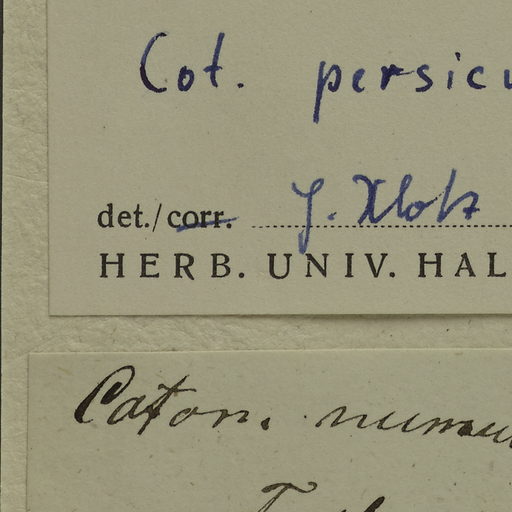 Cot. persicu
det./corr. J. Klotz
HERB. UNIV. HAL
Caton. numm